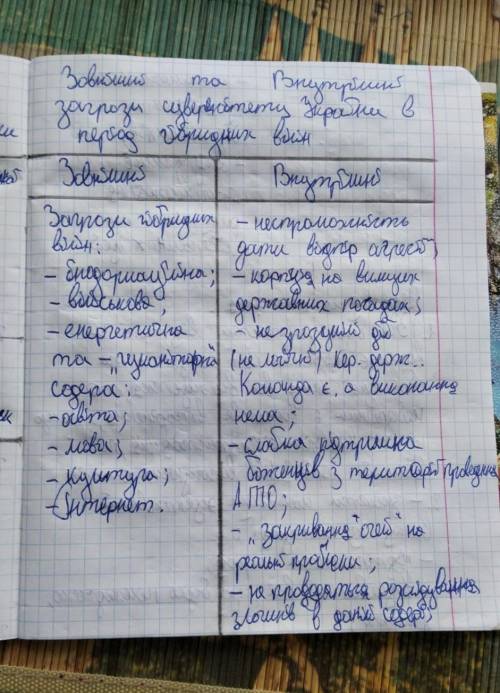 Зовнішні та Внутрішні
загрози суверенітету України в
період гібридних війн
Зовнішні
Загрози гібридних
війн:
- інформаційна;
- військова;
- енергетична
та - „гуманітарна"
сфера:
- освіта;
- мова;
- культура;
- Інтернет.
Внутрішні
- неспроможність
дати відпір агресії;
- корпуція на вищих
державних посадах;
- незрозумілі дії
(не логічні) кер. держ..
Команда є, а виконання
нема;
- слабка підтримка
біженців з території проведення
АТО;
- „закривання" очей на
реальні проблеми;
- не проводяться розслідування
злочинів в даній сфері;